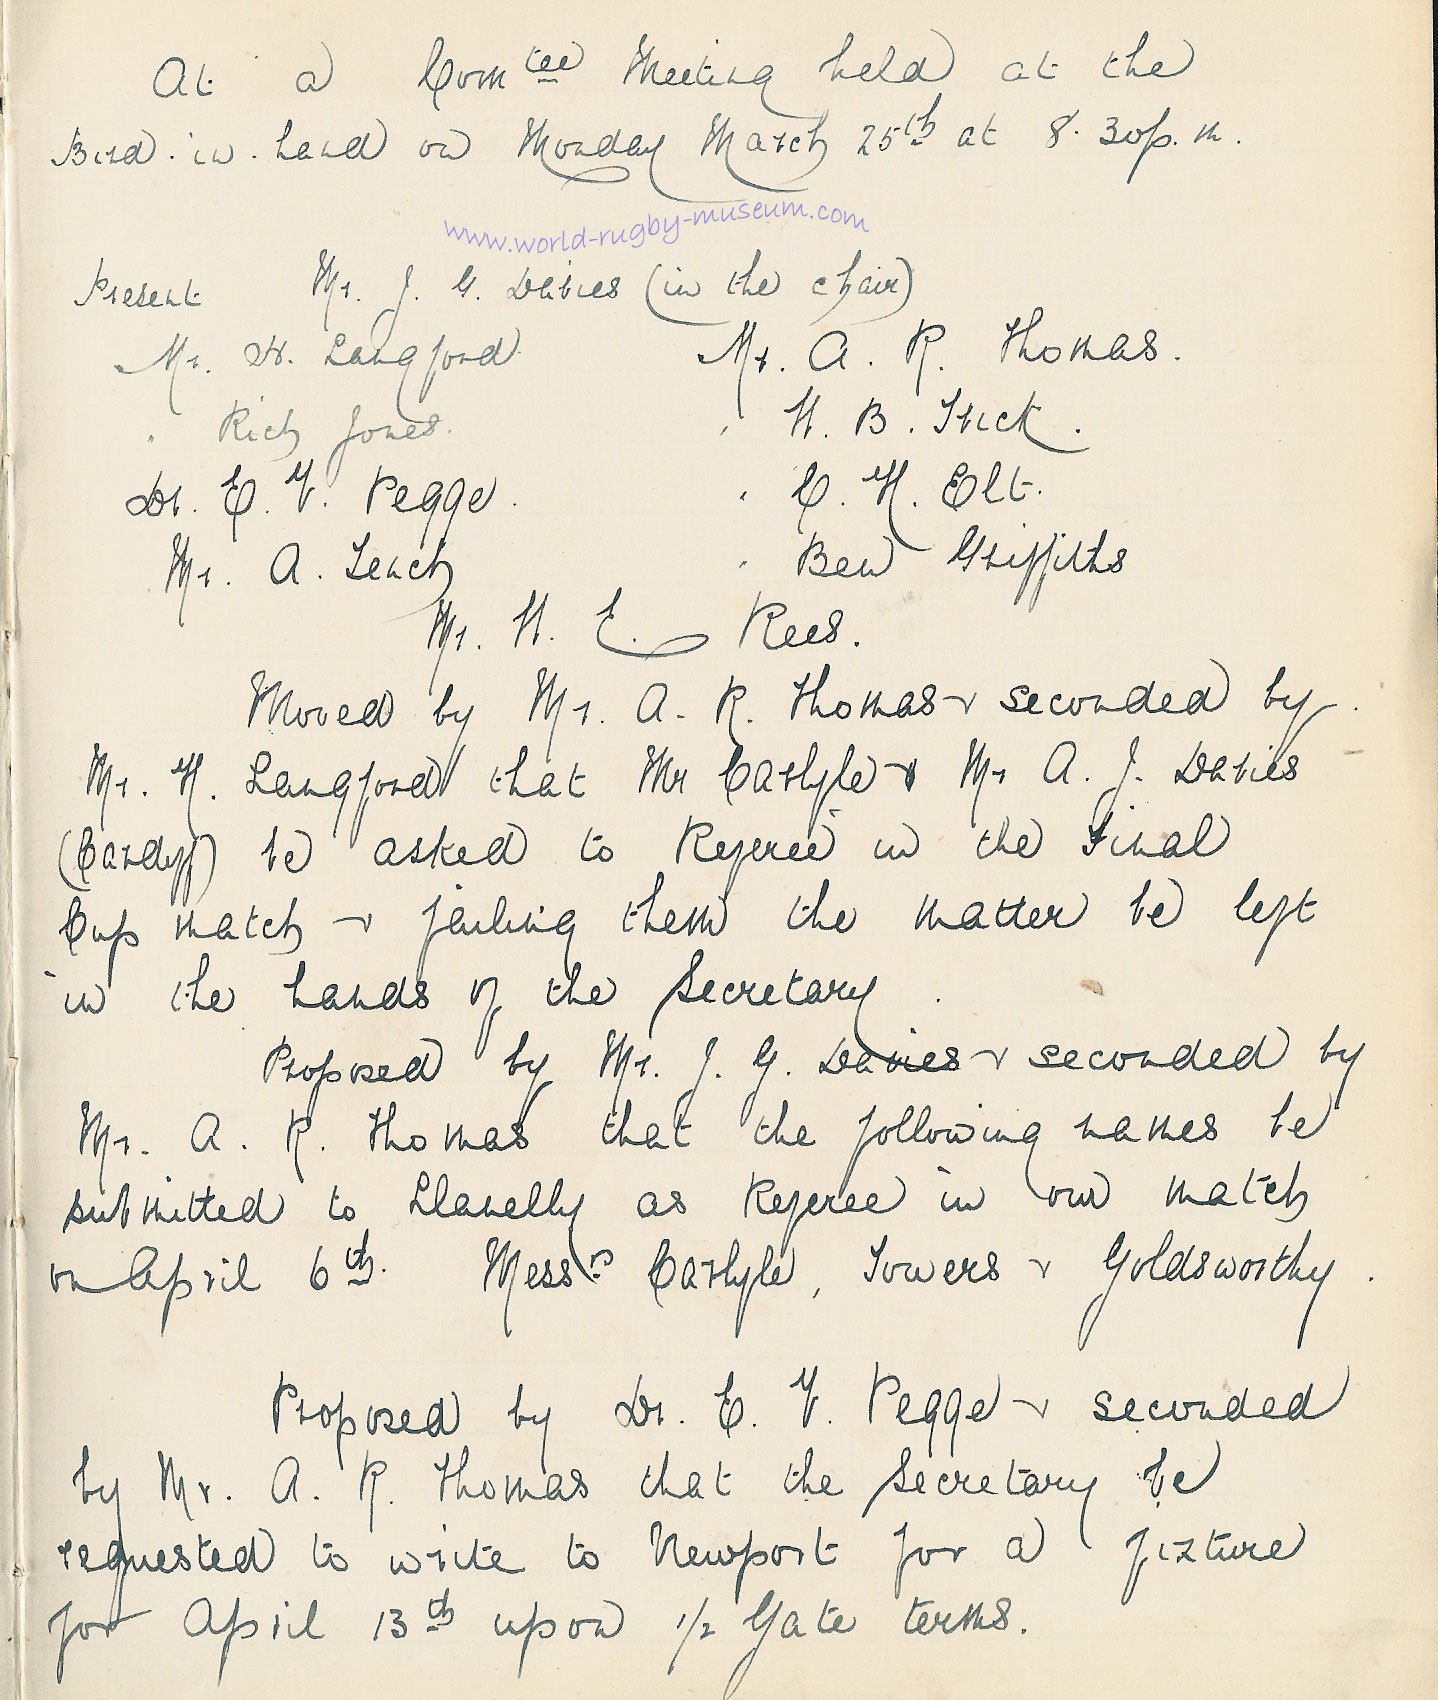 At a Com tee Meeting held at the
Bird. in. hand on Monday March 25th at 8. 30 p. m.
www.world-rugby-museum.com
Present Mr. J. G. Davies (in the chair)
Mr. H. Langford Mr. A. R. Thomas.
" Rich Jones. " H. B. Trick.
Dr. E. V. Pegge. " C. H. Elt.
Mr. A. Tench " Ben Griffiths
Mr. H. E. Rees.
Moved by Mr. A. R. Thomas & seconded by
Mr. H. Langford that Mr Carlyle & Mr A. J. Davies
(Cardiff) be asked to Referee in the Final
Cup match & failing them the matter be left
in the hands of the Secretary.
Proposed by Mr. J. G. Davies & seconded by
Mr. A. R. Thomas that the following names be
submitted to Llanelly as Referee in our match
on April 6th. Messrs Carlyle, Towers & Goldsworthy.
Proposed by Dr. E. V. Pegge & seconded
by Mr. A. R. Thomas that the Secretary be
requested to write to Newport for a fixture
for April 13th upon 1/2 Gate terms.